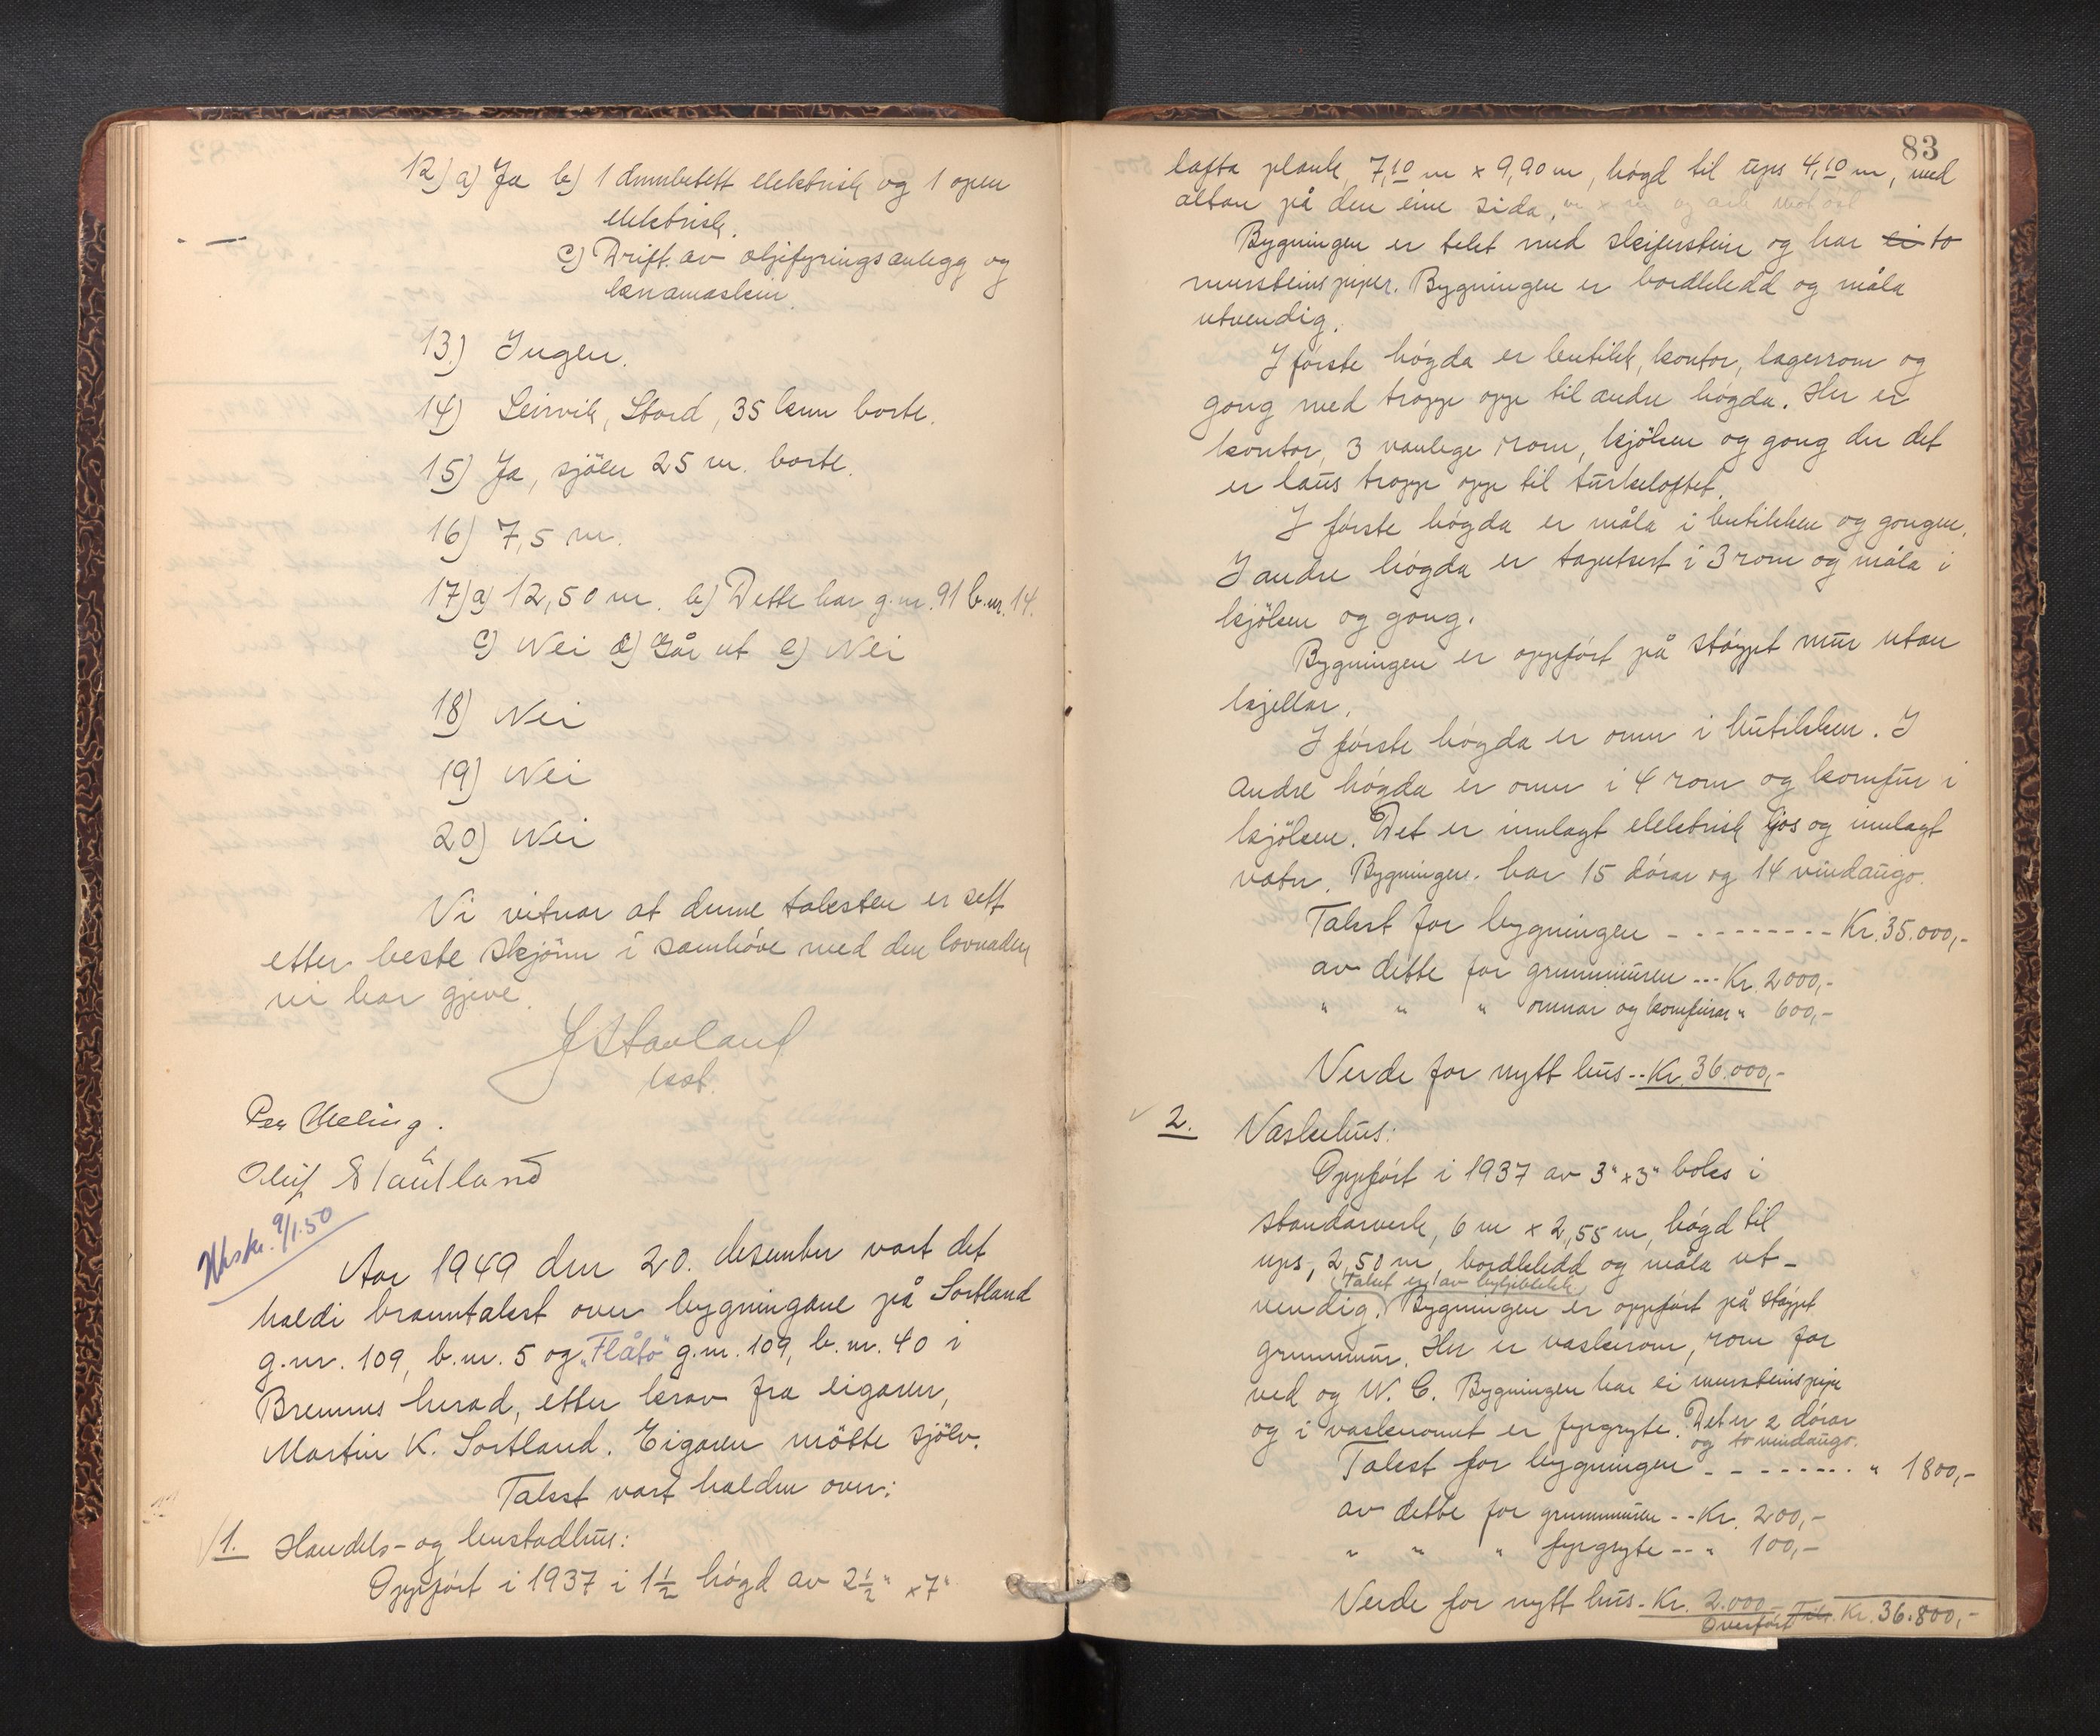 12) a) Ja b) 1 dmmbutett elektrisk og 1 open
elektrisk.
c) Drift av oljefyringsanlegg og
knamaskin.
13) Ingen.
14) Leirvik, Stord, 35 km borte.
15) Ja, sjöen 25 m. borte.
16) 7,5 m.
17) a) 12,50 m. b) Dette har g.nr. 91 b.nr. 14.
c) Nei d) Går ut e) Nei
18) Nei
19) Nei
20) Nei
Vi vitnar at denne taksten er sett
etter beste skjönn i samhöve med den lovnaden
vi har gjeve.
J Stavland
lest.
Per Meling.
Oluf Stautland
Utskr. 9/1.50
Aar 1949 den 20. desember vart det
haldi branntakst over bygningane på Sortland
g.nr. 109, b.nr. 5 og „Flåtö" g.nr. 109, b.nr. 40 i
Bremnes herad, etter krav fra eigaren,
Martin K. Sortland. Eigaren mötte sjölv.
Takst vart halden over:
1. Handels- og bustadhus:
Oppfört i 1937 i 1½ högd av 2½" x 7"
83
lafta plank, 7,10 m x 9,90 m, högd til ups 4,10 m, med
altan på den eine sida,
Bygningen er tekt med skiferstein og har ei to
mursteinspiper. Bygningen er bordkledd og måla
utvendig.
I förste högda er butikk, kontor, lagerrom og
gong med tropp opp til andre högda. Her er
kontor, 3 vanlege rom, kjöken og gong der det
er laus tropp opp til turkeloftet.
I förste högda er måla i butikken og gongen.
I andre högda er tapetsert i 3 rom og måla i
kjöken og gong.
Bygningen er oppfört på stöypt mur utan
kjellar.
I förste högda er omn i butikken. I
andre högda er omn i 4 rom og komfur i
kjöken. Det er innlagt elektrisk ljos og innlagt
vatn. Bygningen har 15 dörar og 14 vindaugo.
Takst for bygningen - - - - - - - - - Kr. 35.000,-
av dette for grunnmuren --- Kr. 2000,-
" " " omnar og komfurar " 600,-
Verde for nytt hus -- Kr. 36.000,-
2. Vaskehus:
Oppfört i 1937 av 3" x 3" boks i
standarverk, 6 m x 2,55 m, högd til
ups, 2,50 m, bordkledd og måla ut-
(Taket er av bylgjeblekk)
vendig. Bygningen er oppfört på stöypt
grunnmur. Her er vaskerom, rom for
ved og W. C. Bygningen har ei mursteinspipe
og i vaskeromet er fyrgryte. Det er 2 dörar
og to vindaugo.
Takst for bygningen - - - - - - - - " 1800,-
av dette for grunnmuren -- Kr. 200,-
" " " fyrgryte -- " 100,-
Verde for nytt hus - Kr. 2.000,-
Overfört Tils. Kr. 36.800,-